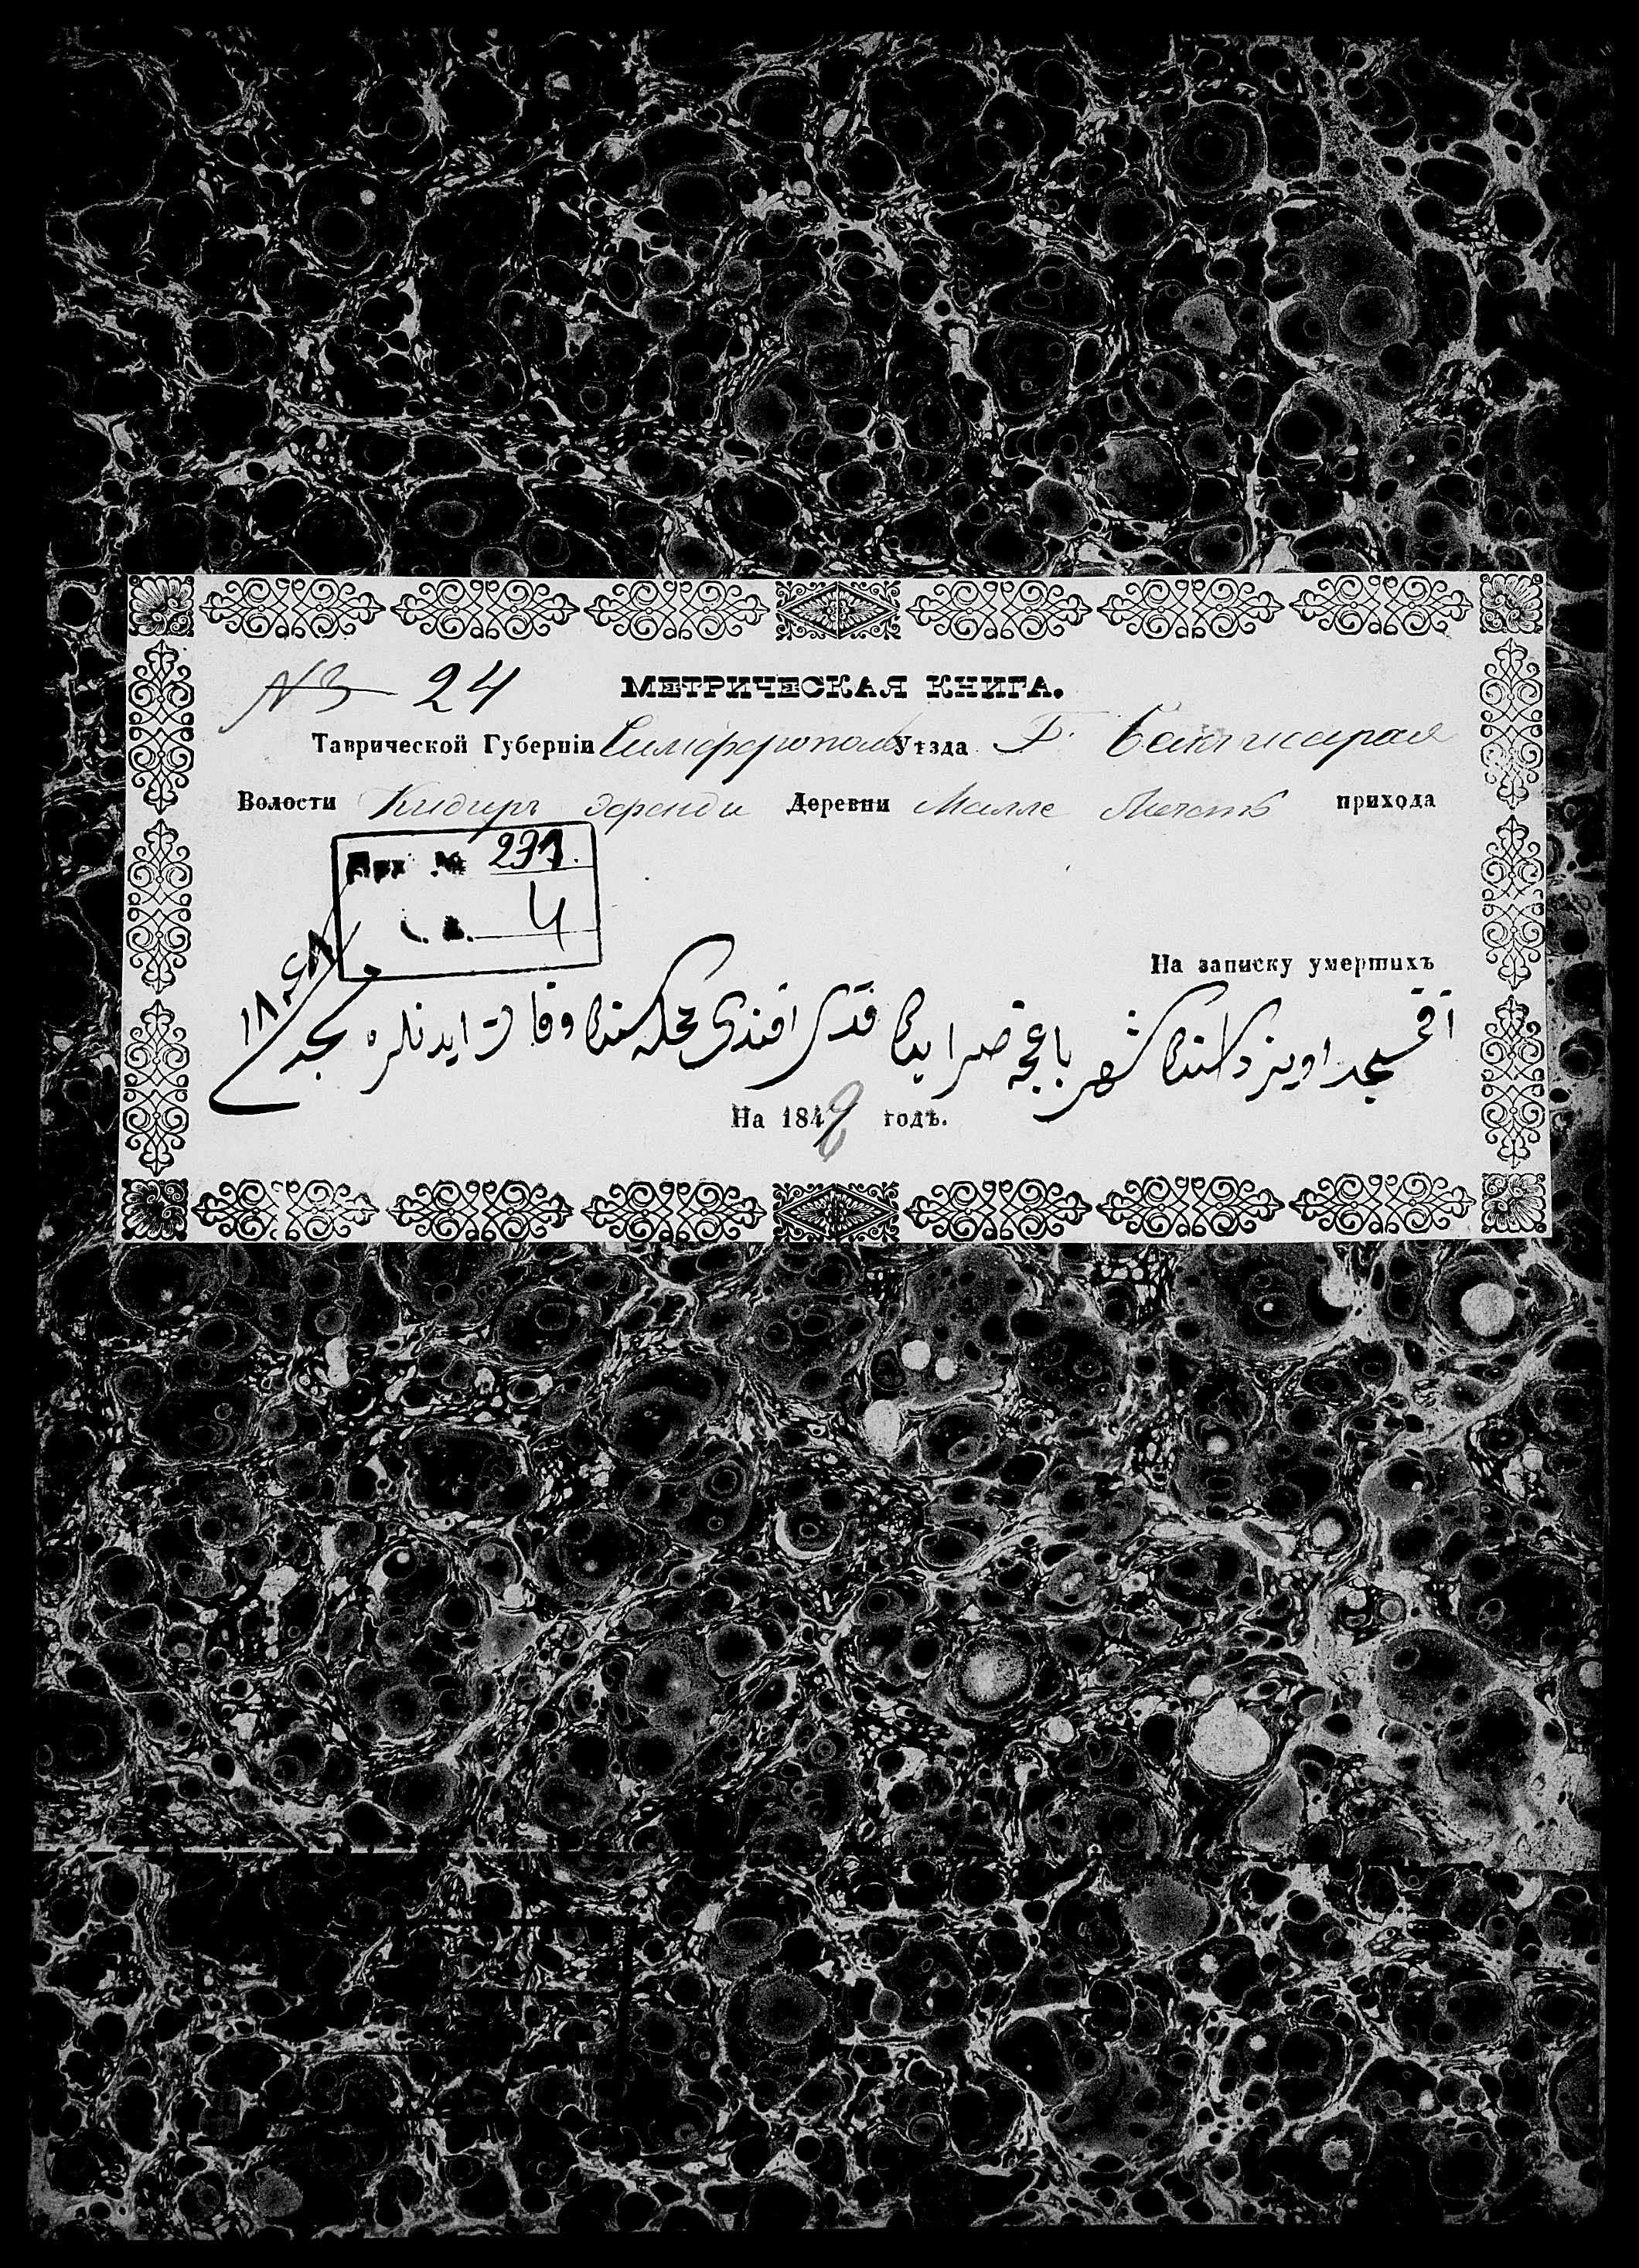 № 24 МЕТРИЧЕСКАЯ КНИГА.
Таврической Губерніи Симферополь Уѣзда Г. Бакчисарая
Волости Кидырь Эфенди Деревни Малле Мечеть прихода
№ 291.
4
На записку умершихъ
آقمسجد اویزداسنده شهر باغچه صرایده قدیر افندی محله سنده وفات ایدنلره
На 1848 годъ.